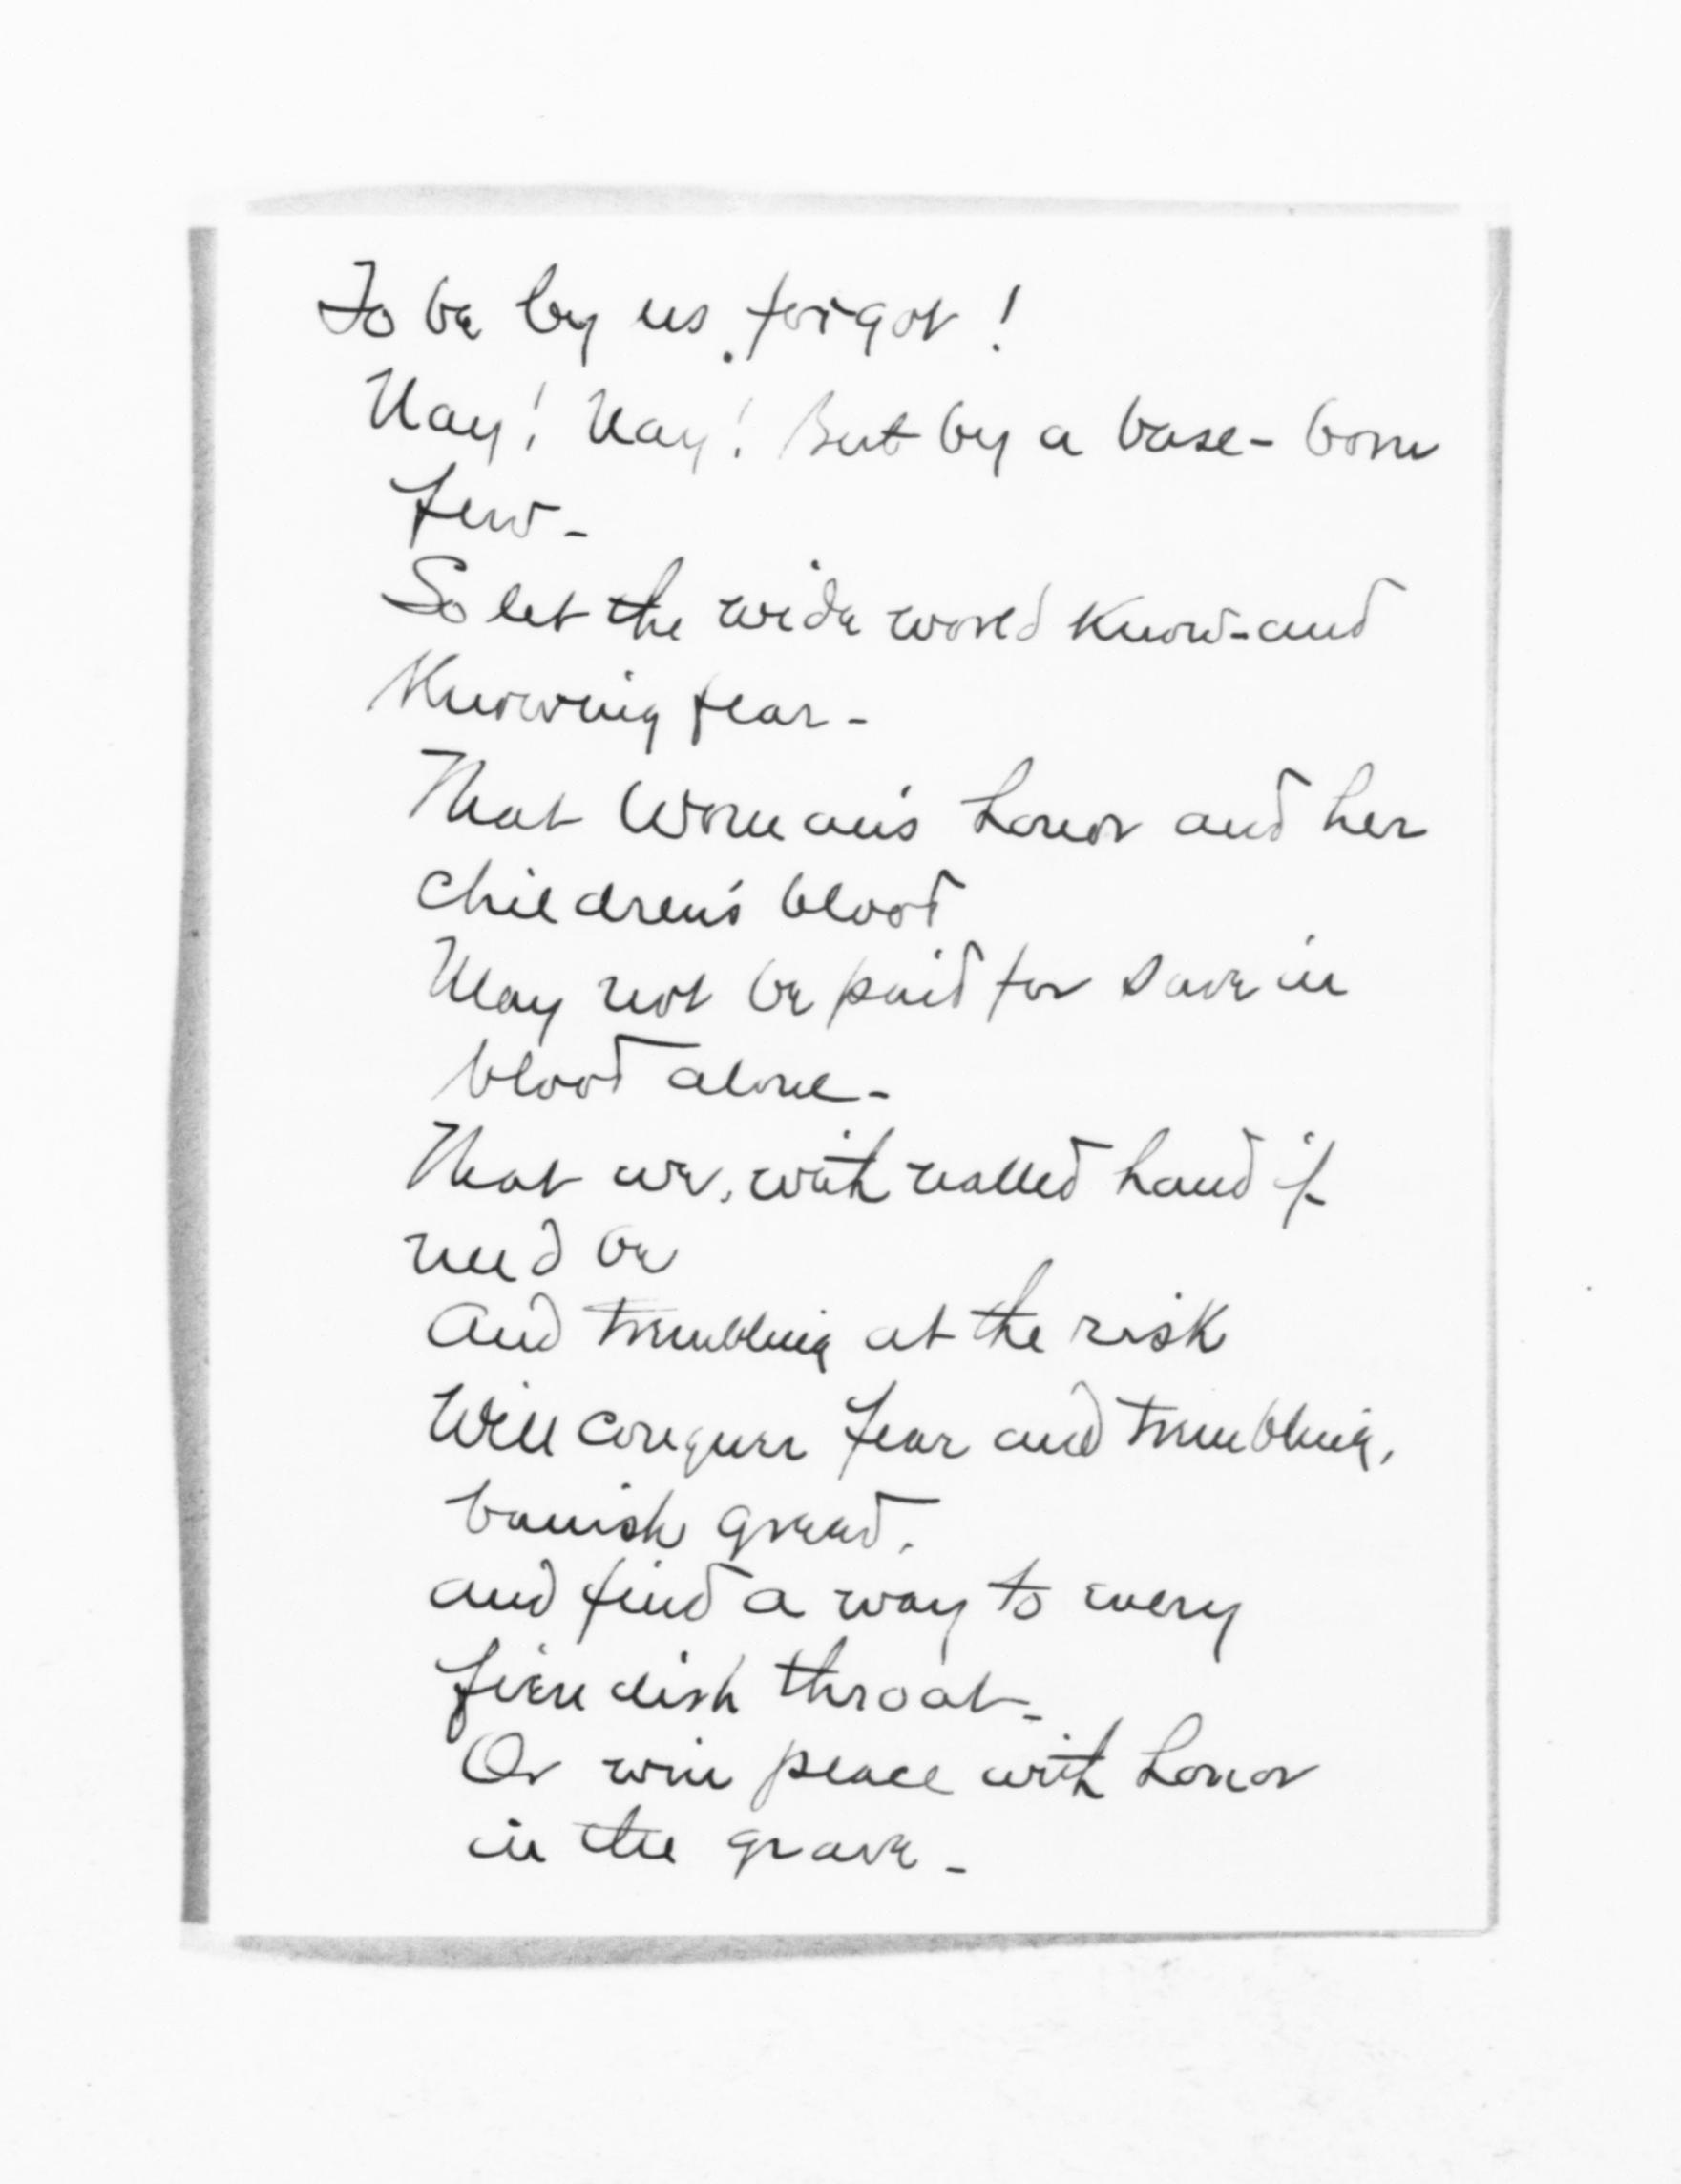 To be by us forgot!
Nay! Nay! But by a base-born
few-
So let the wide world know-and
Knowing fear-
That Woman's honor and her
children's blood
May not be paid for save in
blood alone-
That we, with nailed hand if
need be
And trembling at the risk
Will conquer fear and trembling,
banish greed.
and find a way to every
fiendish throat-
Or win peace with honor
in the grave-